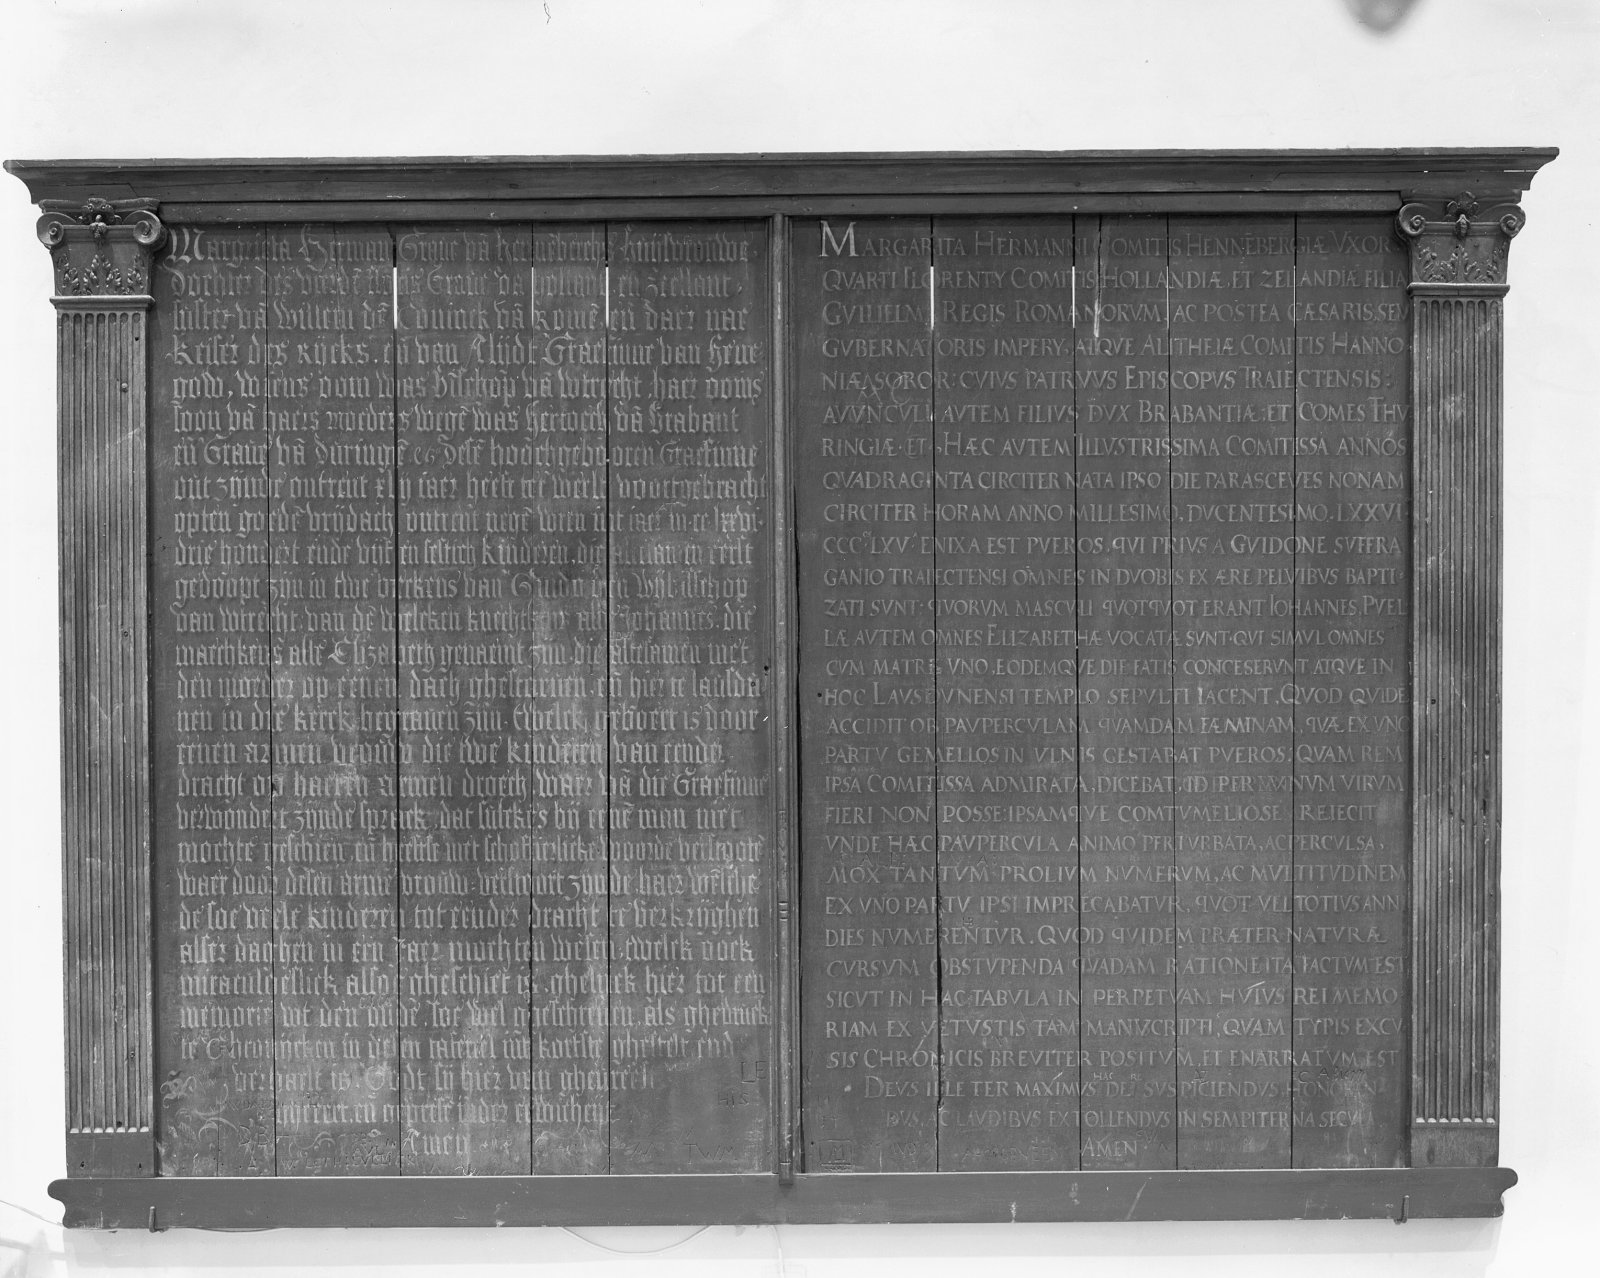 Margrieta Herman Graue vā Henneberchs huisvrouwe,
dochter
suster vā Willem dē Coninck vā Romē en daer nae
keiser des rijcks. en van Alijdt Graefinne van Hene
gow, wiens oom was Bisschop vā wtrecht, haer ooms
soon vā haers moeders wegē was Hertoch vā Brabant
en Graue vā Duringē.
out zijnde ontrent xlij iaer heeft ter werlt voortgebracht
opten goedē vrijdach ontrent negē wren int iaer
drie hondert ende vijf en sestich kinderen, die altsamen eerst
gedoopt zijn in twe beckens van Guido den Wijbisschop
van wtrecht, van dē welcken knechtkens alle Johannes, die
meechkens alle Elizabeth genaemt zijn, die altesamen met
den moeder op eenen dach ghestoruen, en hier te lausdu
nen in die kerck begrauen zijn. twelck gebuert is door
eenen armen vrouw die twe kinderen van eender
dracht op haeren armen droech, waer vā die Graefinne
verwondert zijnde sprack, dat sulcks bij eenē man niet
mochte geschien, en heeftse met
waer door desen arme vrou
de soe veele kinderen tot eender dracht te verkrijghen
alsser daghen in een Jaer mochten wesen. twelck oock
miraculoeslick alsoe gheschiet is, ghelijck hier tot een
memorie wt den ouden soe wel gheschreuen, als ghedruck
te Chronijcken in desen tafereel int kortste ghestelt end
verhaelt is. Godt sij hier vern gheureest
gheeert, en gepresen inder ewicheijt.
Amen
MARGARITA HERMANNI COMITIS HENNEBERGIÆ VXOR
QVARTI FLORENTY COMITIS HOLLANDIÆ, ET ZELANDIÆ FILIA
GVILIELMI REGIS ROMANORVM, AC POSTEA CÆSARIS, SEV
GVBERNATORIS IMPERY, ATQVE ALITHEIÆ COMITIS HANNO-
NIÆ SOROR. CVIVS PATRVVS EPISCOPVS TRAIECTENSIS:
AVVNCVLI AVTEM FILIVS DVX BRABANTIÆ ET COMES THV
RINGIÆ. ET. HÆC AVTEM ILLVSTRISSIMA COMITISSA ANNOS
QVADRAGINTA CIRCITER NATA IPSO DIE PARASCEVES NONAM
CIRCITER HORAM ANNO MILLESIMO, DVCENTESIMO. LXXVI
CCC. LXV. ENIXA EST PVEROS. QVI PRIVS A GVIDONE SVFFRA
GANIO TRAIECTENSI OMNES IN DVOBIS EX ÆRE PELVIBVS BAPTI-
ZATI SVNT. QVORVM MASCVLI QVOTQVOT ERANT IOHANNES, PVEL
LÆ AVTEM OMNES ELIZABETHÆ VOCATÆ SVNT. QVI SIMVL OMNES
CVM MATRE VNO, EODEMQVE DIE FATIS CONCESERVNT ATQVE IN
HOC LAVSDVNENSI TEMPLO SEPVLTI IACENT. QVOD QVIDE
ACCIDIT OB PAVPERCVLAM QVAMDAM FÆMINAM, QVÆ EX VNO
PARTV GEMELLOS IN VLNIS GESTABAT PVEROS. QVAM REM
IPSA COMITISSA ADMIRATA, DICEBAT, ID PER VNVM VIRVM
FIERI NON POSSE: IPSAMQVE COMTVMELIOSE REIECIT
VNDE HÆC PAVPERCVLA ANIMO PERTVRBATA, AC PERCVLSA,
MOX TANTVM PROLIVM NVMERVM, AC MVLTITVDINEM
EX VNO PARTV IPSI IMPRECABATVR, QVOT VEL TOTIVS ANNI
DIES NVMERENTVR. QVOD QVIDEM PRÆTER NATVRÆ
CVRSVM OBSTVPENDA QVADAM RATIONE ITA FACTVM EST
SICVT IN HAC TABVLA IN PERPETVAM HVIVS REI MEMO
RIAM EX VETVSTIS TAM MANVSCRIPTI, QVAM TYPIS EXCV
SIS CHRONICIS BREVITER POSITVM, ET ENARRATVM EST
DEVS ILLE TER MAXIMVS SVSPICIENDVS, HONORAN
DVS, AC LAVDIBVS EXTOLLENDVS IN SEMPITERNA SECVLA
AMEN